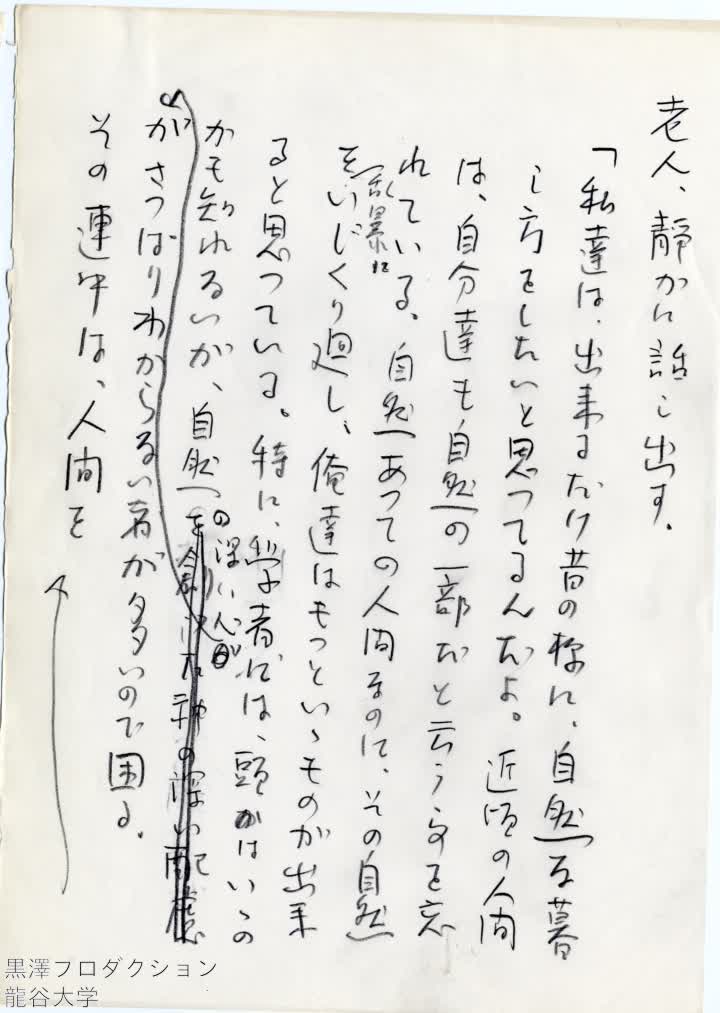 老人、静かに話し出す。
「私達は、出来るだけ昔の様に、自然な暮
し方をしたいと思つてるんだよ。近頃の人間
は、自分達も自然の一部だと云う事を忘
れている。自然あつての人間なのに、その自然
を乱暴にいじくり廻し、俺達はもつといゝものが出来
ると思つている。特に、学者には、頭はいゝの
かも知れないが、自然の深い心
がさつぱりわからない者が多いので困る。
その連中は、人間を
黒澤プロダクション
龍谷大学